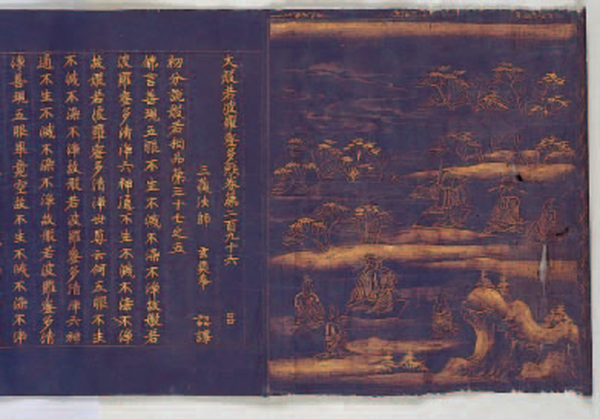 大般若波羅蜜多經卷第二百九十六 呂
三藏法師 玄奘奉 詔譯
初分說般若相品第三十七之五
佛言善現五眼不生不滅不染不淨故般若
波羅蜜多清淨六神通不生不滅不染不淨
故般若波羅蜜多清淨世尊云何五眼不生
不滅不染不淨故般若波羅蜜多清淨六神
通不生不滅不染不淨故般若波羅蜜多清
淨善現五眼畢竟空故不生不滅不染不淨